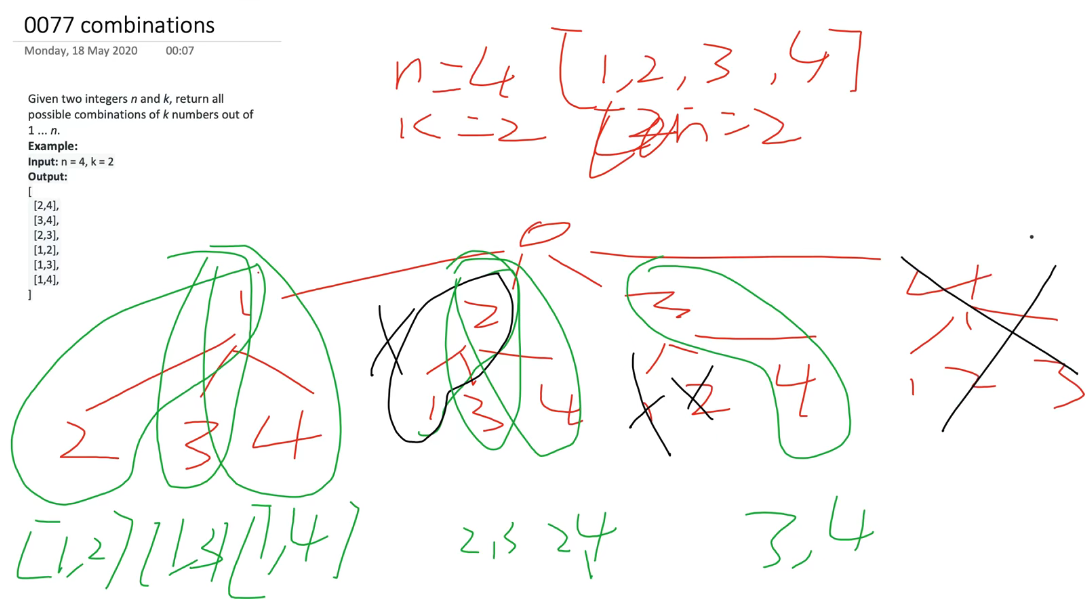 0077 combinations
Monday, 18 May 2020 00:07
Given two integers n and k, return all
possible combinations of k numbers out of
1 ... n.
Example:
Input: n = 4, k = 2
Output:
[
[2,4],
[3,4],
[2,3],
[1,2],
[1,3],
[1,4],
]
n=4 [1,2,3,4]
k=2 n=2
0
1 2 3 4
2 3 4 1 3 4 1 2 4 1 2 3
[1,2] [1,3] [1,4] 2,3 2,4 3,4